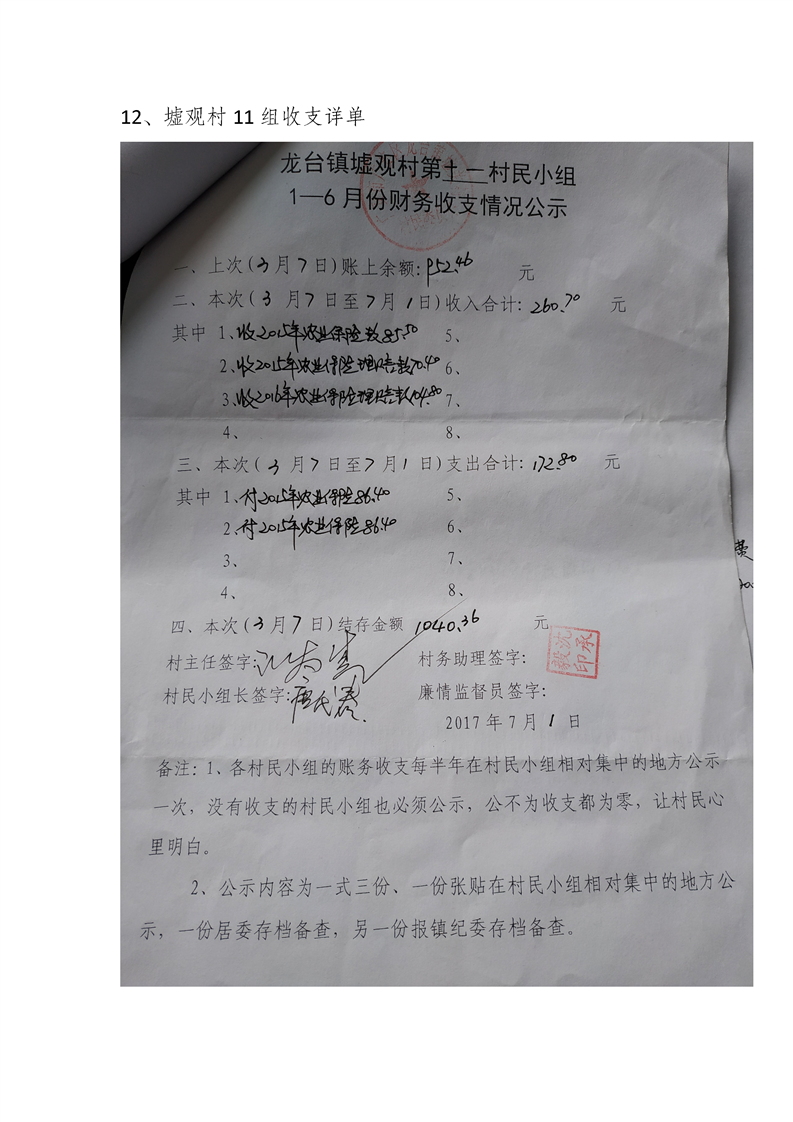 12、墟观村 11 组收支详单
龙台镇墟观村第十一村民小组
1—6 月份财务收支情况公示
一、上次(3月7日)账上余额:952.46 元
二、本次(3月7日至7月1日)收入合计:260.70 元
其中 1、收2015年农业保险款85.50 5、
2、收2015年农业保险理赔款70.40 6、
3、收2016年农业保险理赔款104.80 7、
4、 8、
三、本次(3月7日至7月1日)支出合计:172.80 元
其中 1、付2015年农业保险86.40 5、
2、付2015年农业保险86.40 6、
3、 7、
4、 8、
四、本次(3月7日)结存金额 1040.36 元
村主任签字: 村务助理签字:
村民小组长签字: 廉情监督员签字:
2017年7月1日
备注:1、各村民小组的账务收支每半年在村民小组相对集中的地方公示
一次，没有收支的村民小组也必须公示，公不为收支都为零，让村民心
里明白。
2、公示内容为一式三份、一份张贴在村民小组相对集中的地方公
示，一份居委存档备查，另一份报镇纪委存档备查。